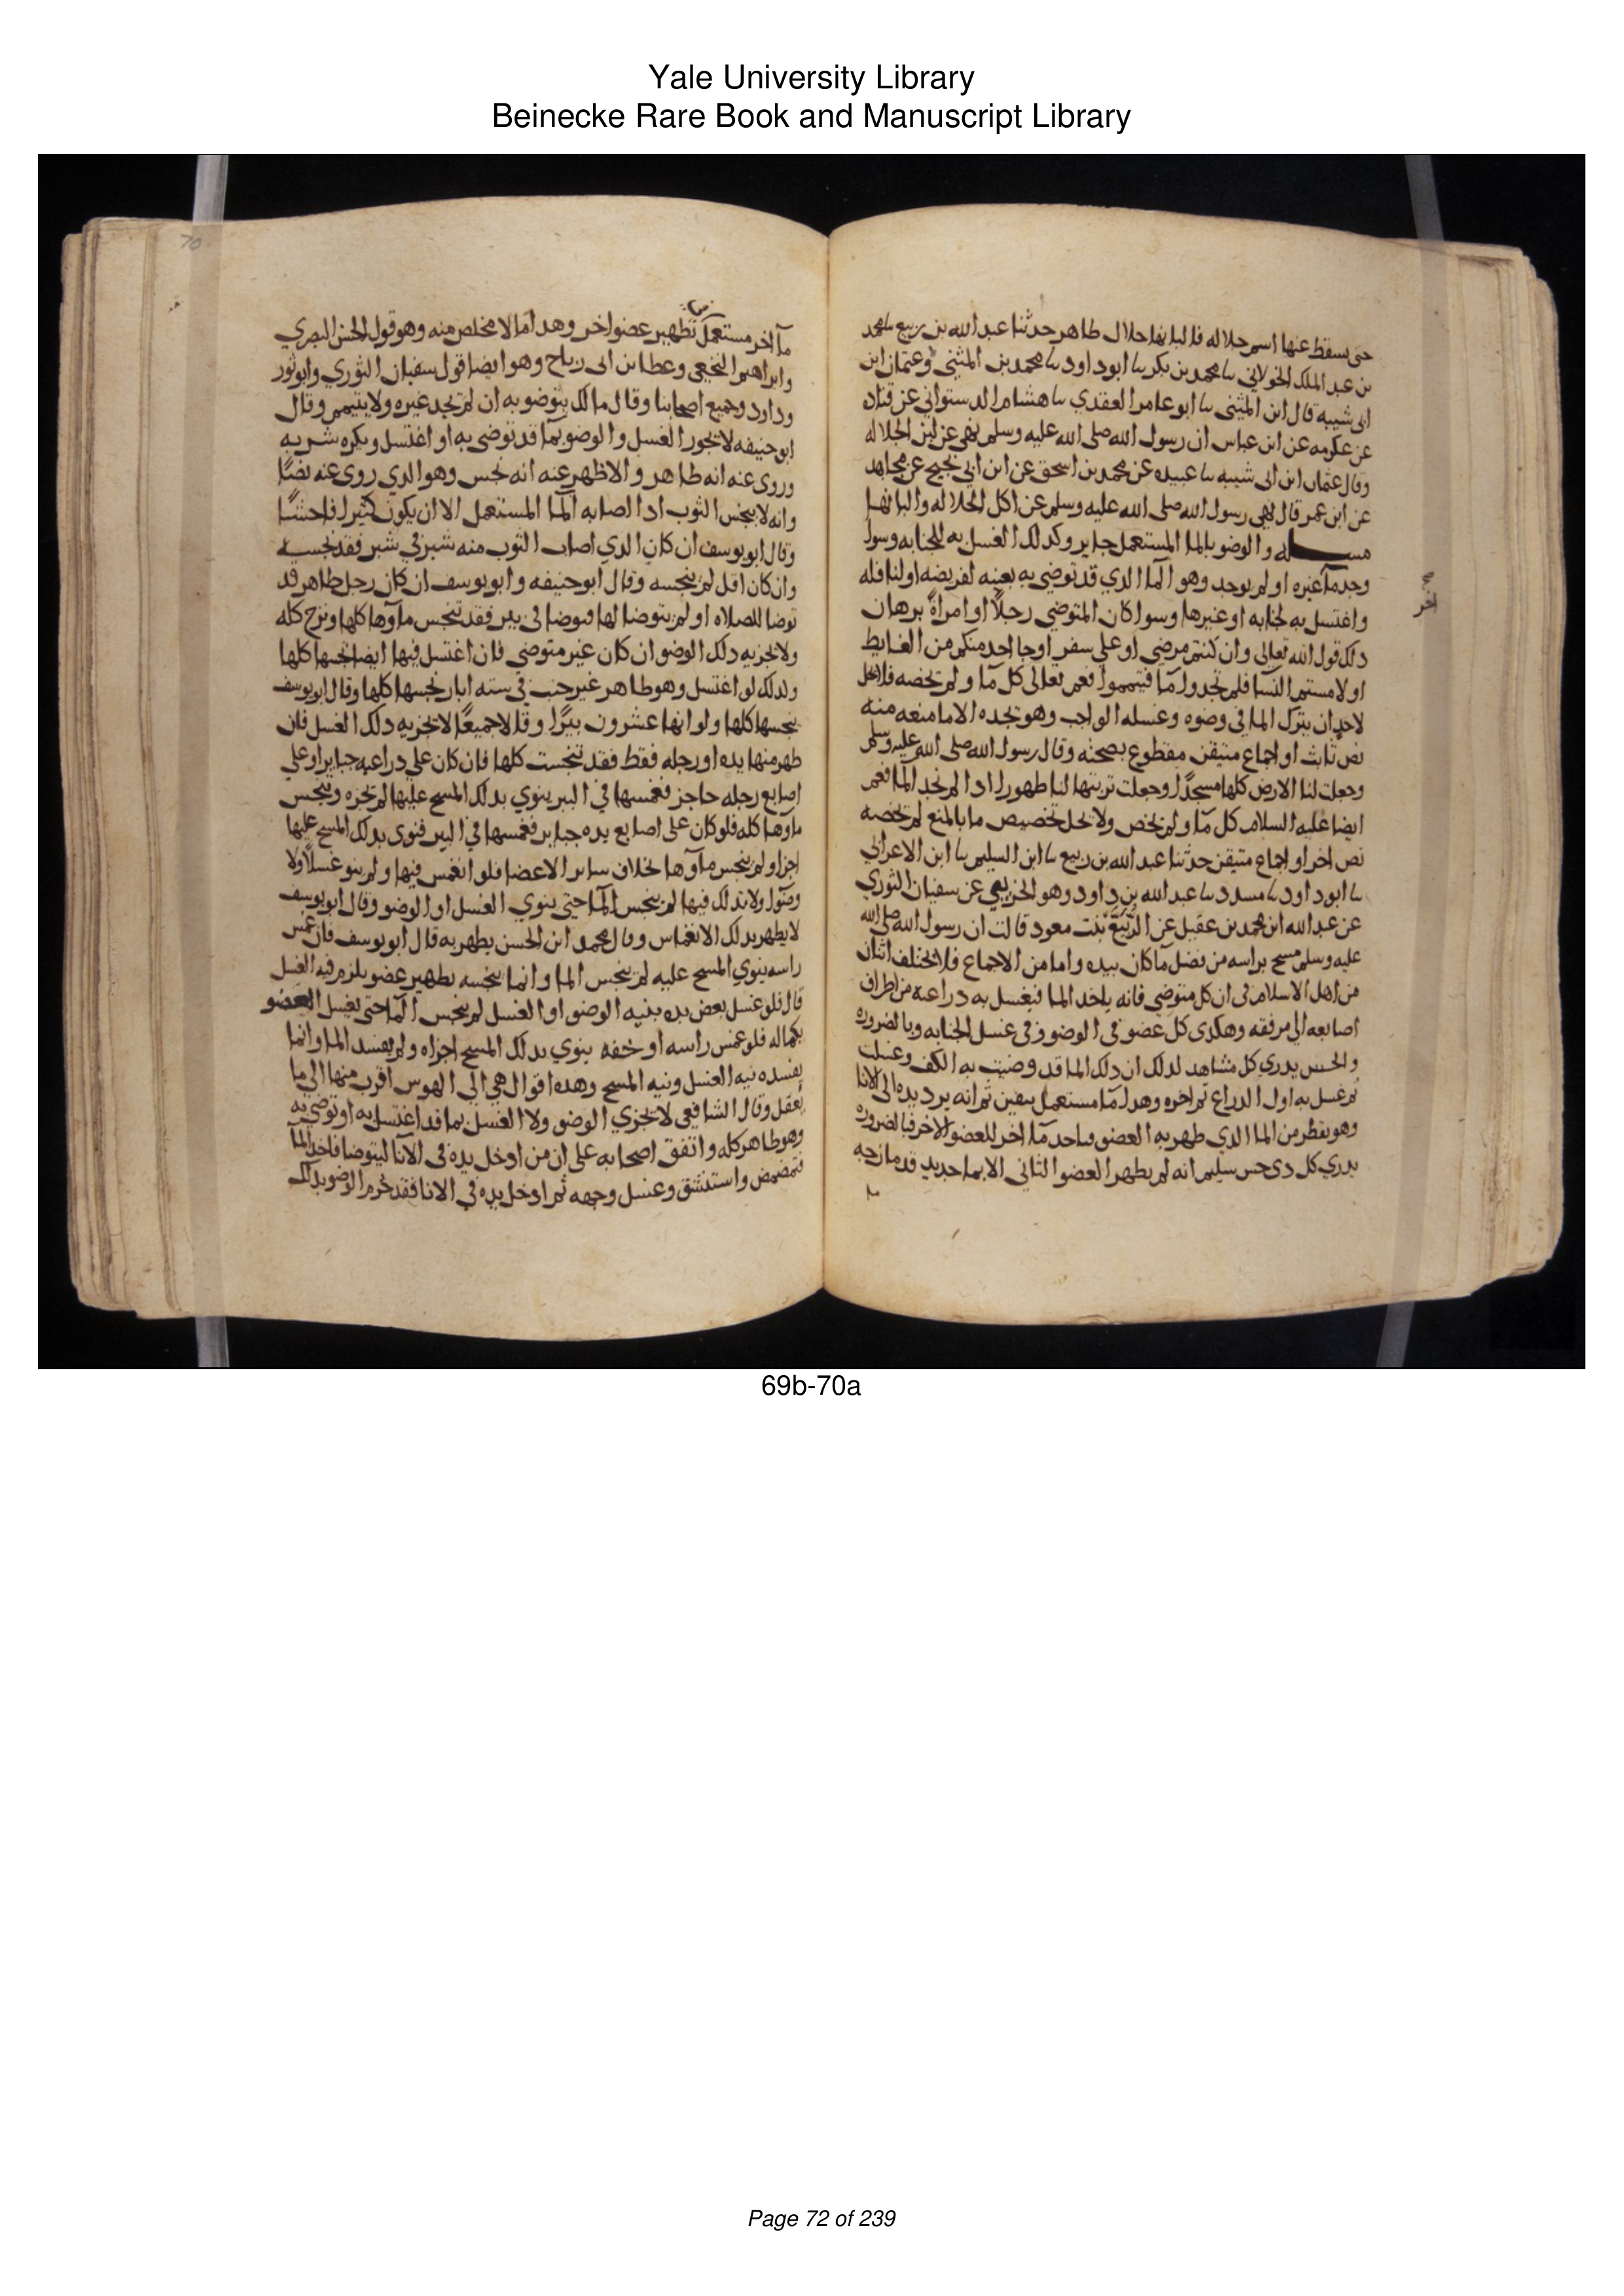 Yale University Library
Beinecke Rare Book and Manuscript Library
حتى يسقط عنها اسم جلاله فالبانها حلال طاهر حدثنا عبد الله بن ربيع نا محمد
بن عبد الملك الخولاني نا محمد بن بكر نا ابو داود نا محمد بن المثنى وعثمان ابن
ابى شيبه قال ابن المثنى نا ابو عامر العقدي نا هشام الدستواني عن قتاده
عن عكرمه عن ابن عباس ان رسول الله صلى الله عليه وسلم نهى عن لبن الجلاله
وقال عثمان ابن ابى شيبه نا عبده عن محمد بن اسحق عن ابن ابي نجيح عن مجاهد
عن ابن عمر قال نهى رسول الله صلى الله عليه وسلم عن اكل الجلاله والبانها
مسـله والوضو بالما المستعمل جاير وكدلك الغسل به للجنابه وسوا
وجد ما غيره او لم يوجد وهو الما الدي قد توضي به بعينه لفريضه او لنافله
واغتسل به لجنابه او غيرها وسوا كان المتوضي رجلاً او امراةً برهان
دلك قول الله تعالى وان كنتم مرضي او علي سفر او جا احد منكم من الغايط
او لامستم النسا فلم تجدوا ما فتيمموا فعم تعالى كل ما ولم يخصه فلا يحل
لاحد ان يترك الما في وضوه وغسله الواجب وهو يجده الا ما منعه منه
نص ثابت او اجماع متيقن مقطوع بصحته وقال رسول الله صلى الله عليه وسلم
وجعلت لنا الارض كلها مسجدًا وجعلت تربتها لنا طهورا ادا لم نجد الما فعم
ايضا عليه السلام كل ما ولم يخص ولا يحل تخصيص ما بالمنع لم يخصه
نص اخر او اجماع متيقن حدثنا عبد الله بن ربيع نا ابن السليم نا ابن الاعرابي
نا ابو داود نا مسدد نا عبد الله بن داود وهو الخريبي عن سفيان الثوري
عن عبد الله ابن محمد بن عقيل عن الربيع بنت معود قالت ان رسول الله صلى الله
عليه وسلم مسح براسه من فضل ما كان بيده واما من الاجماع فلا يختلف اثنان
من اهل الاسلام فى ان كل متوضي فانه ياخد الما فيغسل به دراعيه من اطراف
اصابعه الى مرفقه وهكدى كل عضو في الوضو وفى غسل الجنابه وبالضروره
والحس يدري كل مشاهد لدلك ان دلك الما قد وضيت به الكف وغسلت
ثم غسل به اول الدراع ثم اخره وهدا ما مستعمل بيقين ثم انه يرد يده الى الانا
وهو يقطر من الما الدي طهر به العضو فياخد ما اخر للعضو الاخر فبالضروره
يدري كل دى حس سليم انه لم يطهر العضو الثاني الا بما جديد قد مازجه
آخر
70
ما آخر مستعمل تطهير عضو اخر وهدا ما لا مخلص منه وهو قول الحسن البصري
وابراهيم النخعي وعطا بن ابى رباح وهو ايضا قول سفيان الثوري وابو ثور
وداود وجميع اصحابنا وقال مالك يتوضو به ان لم تجد غيره ولا يتيمم وقال
ابو حنيفه لا يجور الغسل والوضو بما قد توضي به او اغتسل ويكره شربه
وروى عنه انه طاهر والاظهر عنه انه نجس وهو الدي روى عنه نصًا
وانه لا ينجس الثوب ادا اصابه الما المستعمل الا ان يكون كثيرا فاحشًا
وقال ابو يوسف ان كان الدي اصاب الثوب منه شبر في شبر فقد نجسه
وان كان اقل لم ينجسه وقال ابو حنيفه وابو يوسف ان كان رجل طاهر قد
توضا للصلاه او لم يتوضا لها فتوضا فى بير فقد تنجس ماوها كلها وتنزح كله
ولا يجزيه دلك الوضو ان كان غير متوضي فان اغتسل فيها ايضا نجسها كلها
ولدلك لو اغتسل وهو طاهر غير جنب فى سته ابار نجسها كلها وقال ابو يوسف
ينجسها كلها ولو انها عشرون بيرًا وقالا جميعًا لا يجزيه دلك الغسل فان
طهر منها يده او رجله فقط فقد تنجست كلها فان كان علي دراعيه جباير او علي
اصابع رجله حاجز فغمسها في البير ينوي بدلك المسح عليها لم يجزه وينجس
ماوها كله فلو كان على اصابع يده جباير فغمسها في البير فنوى بدلك المسح عليها
اجزا ولم ينجس ماوها بخلاف ساير الاعضا فلو انغمس فيها ولم ينو غسلاً ولا
وضوًا ولا تدلك فيها لم ينجس الما حتى ينوي الغسل او الوضو وقال ابو يوسف
لا يطهر بدلك الانغماس وقال محمد ابن الحسن يطهر به قال ابو يوسف فان غمس
راسه ينوي المسح عليه لم ينجس الما وانما ينجسه تطهير عضو يلزم فيه الغسل
قال فلو غسل بعض يده بنيه الوضو او الغسل لم ينجس الما حتى يغسل العضو
بكماله فلو غمس راسه او خفه ينوي بدلك المسح اجزاه ولم يفسد الما وانما
يفسده نيه الغسل ونيه المسح وهده اقوال هي الى الهوس اقرب منها الى ما
يعقل وقال الشافعي لا يجزي الوضو ولا الغسل بما قد اغتسل به او توضي به
وهو طاهر كله واتفق اصحابه على ان من ادخل يده فى الانا ليتوضا فاخد الما
فتمضمض واستنشق وغسل وجهه ثم ادخل يده في الانا فقد حرم الوضو بدلك
69b-70a
Page 72 of 239